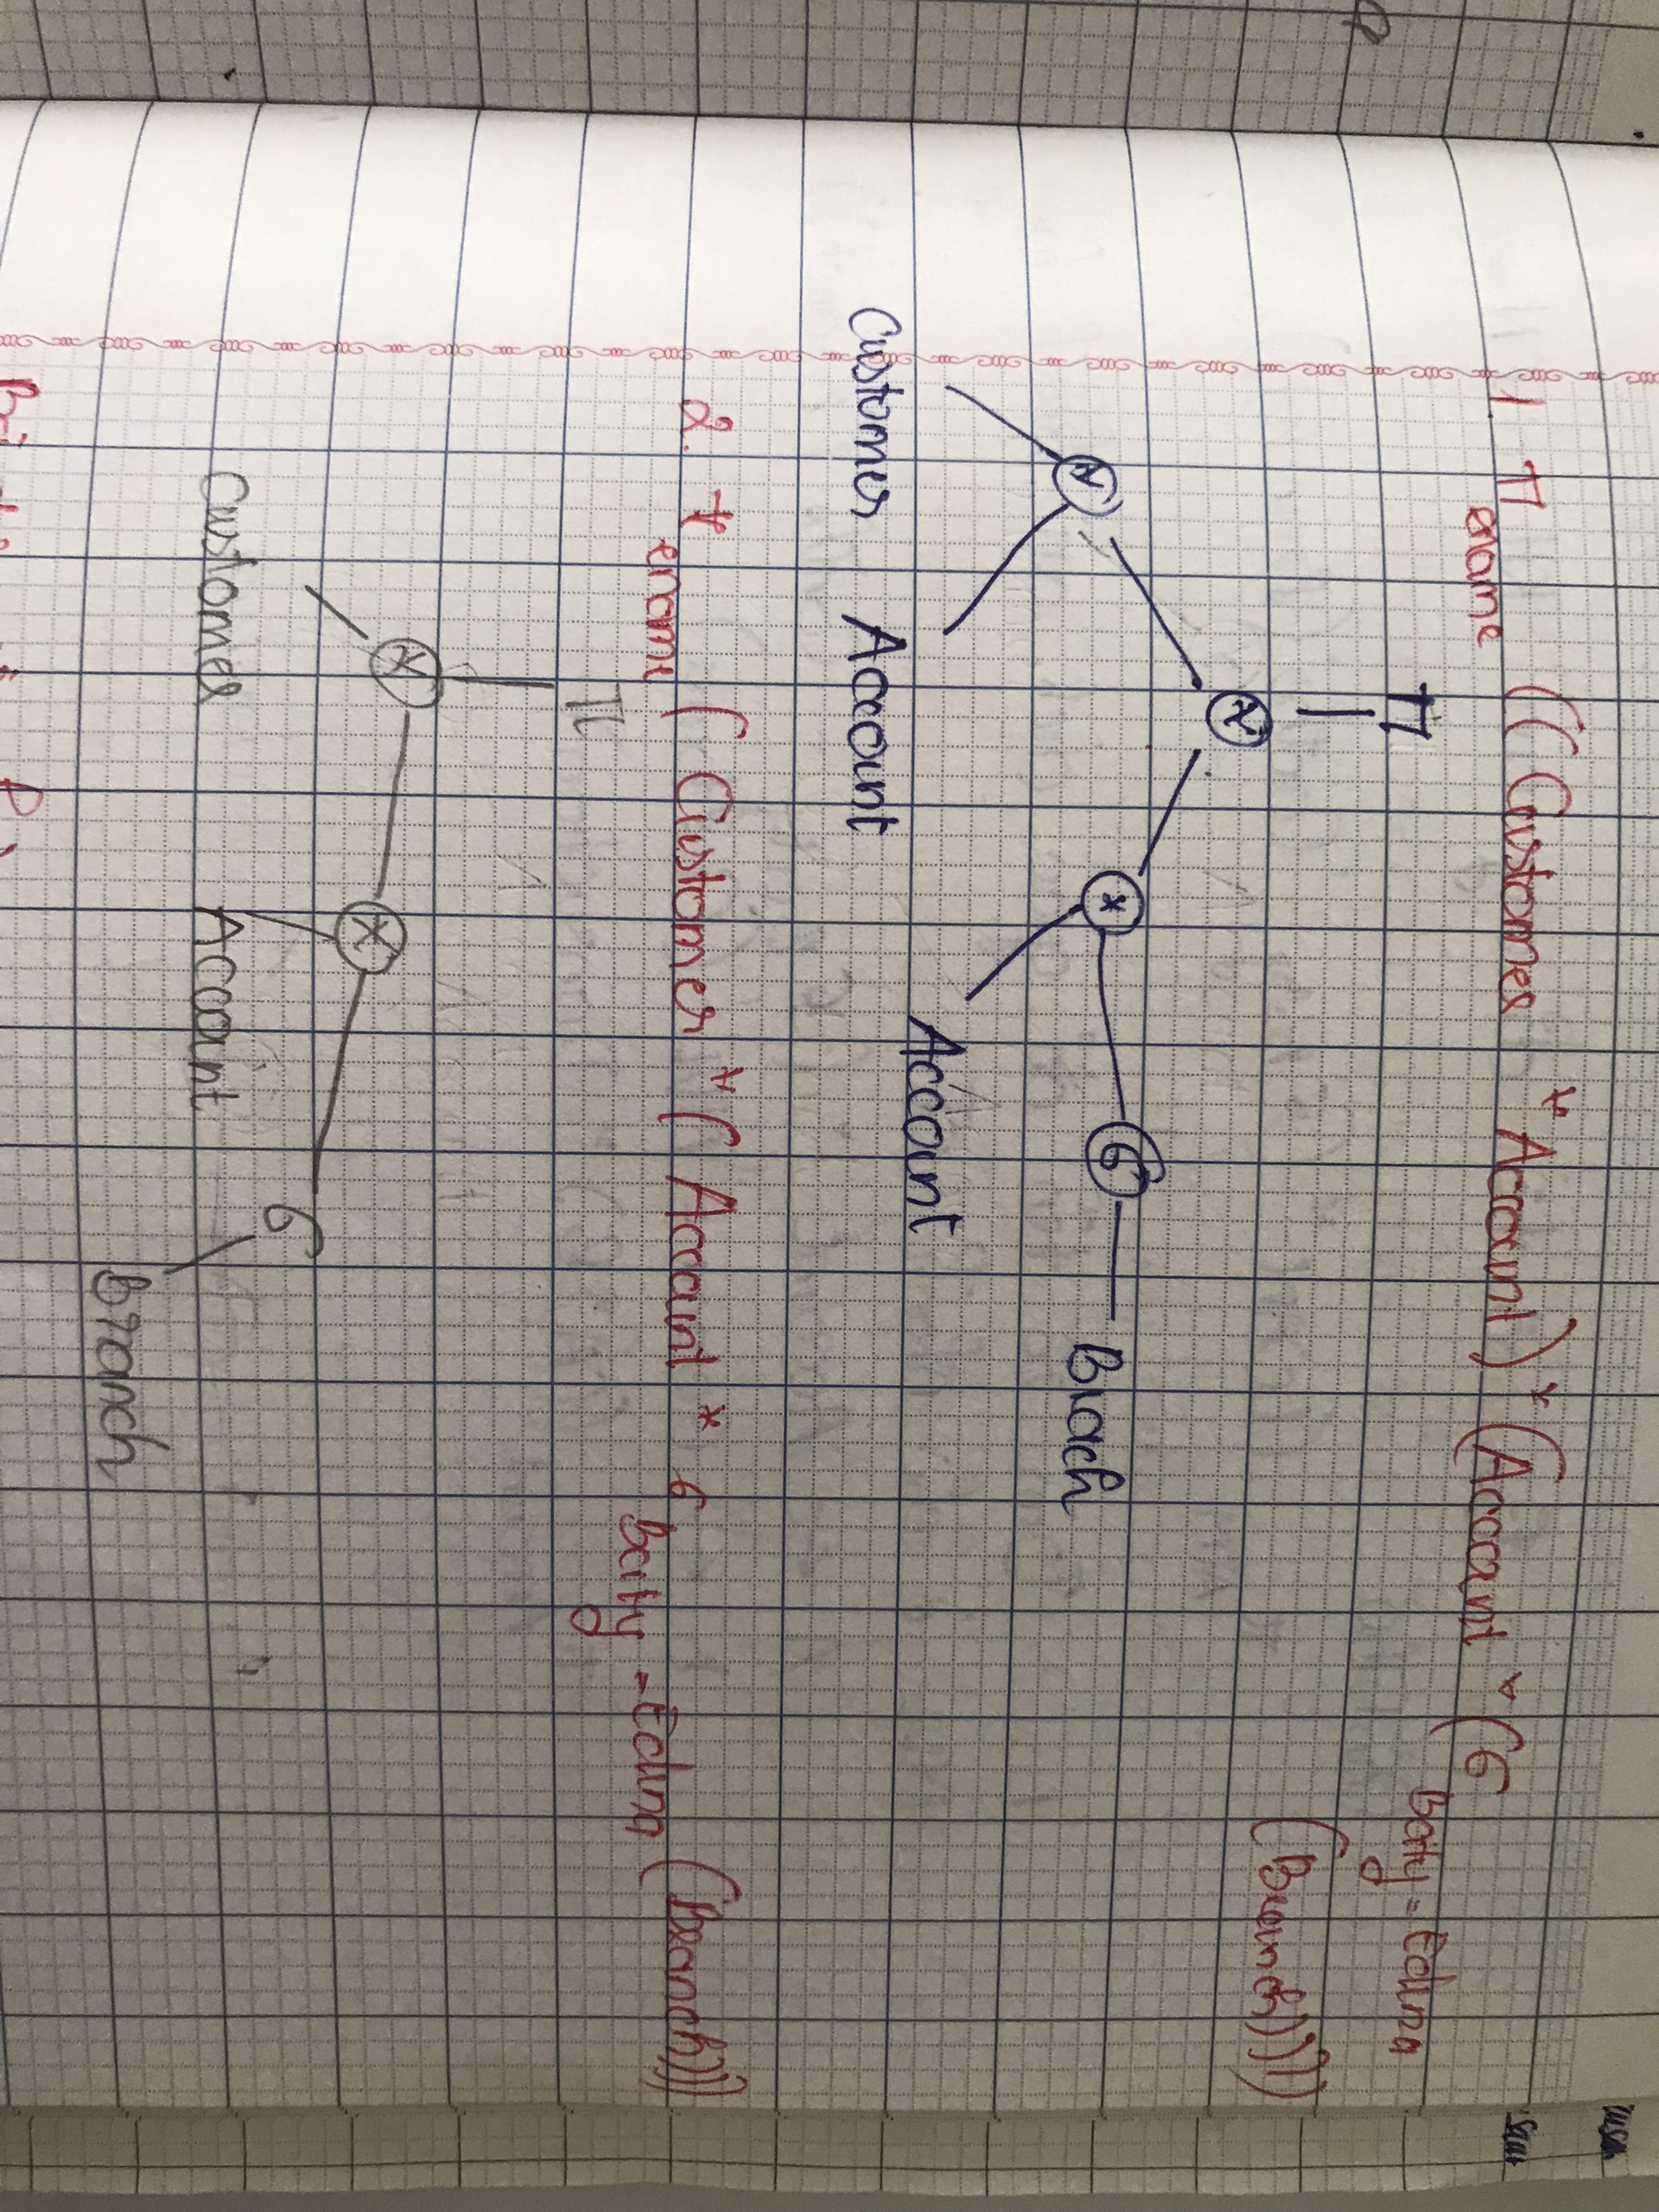 1. π ename ((Customer * Account) * (Account * (σ Bcity = Edina
(Branch))))
π
*
* * σ Brach
Account
Customer Account
2. π ename (Customer * (Account * σ Bcity = Edina (Branch)))
π
* *
σ
Customer Account
Branch